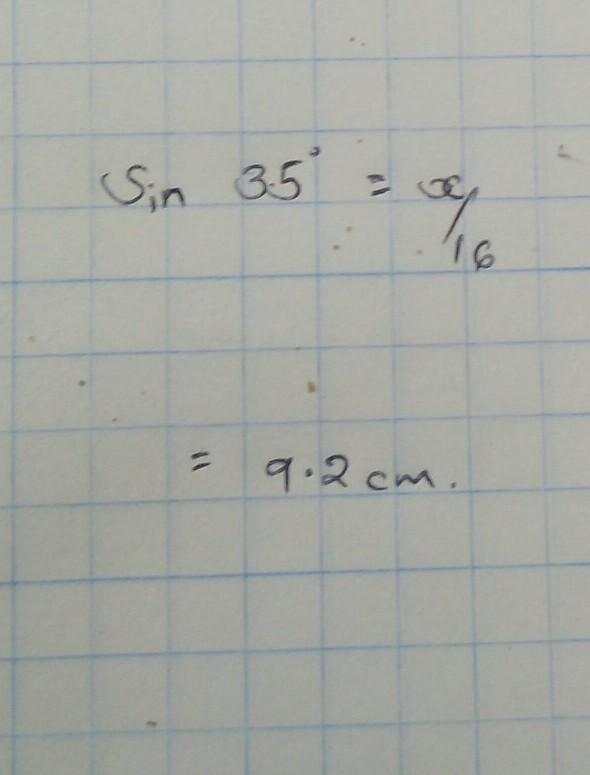 Sin 35° = x/16
= 9.2 cm.